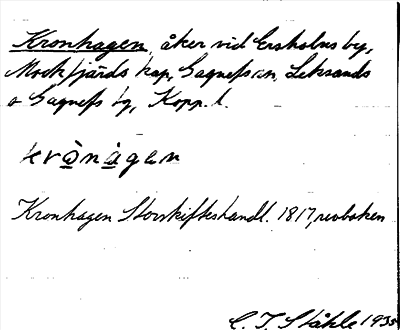 Kronhagen, åker vid Ersholns by,
Mockfjärds kap., Gagnefs sn, Leksands
o Gagnefs tg, Kopp. l.
krò̱nà̱gen
Kronhagen Storskifteshandl. 1817, revboken
C. I. Ståhle 1935